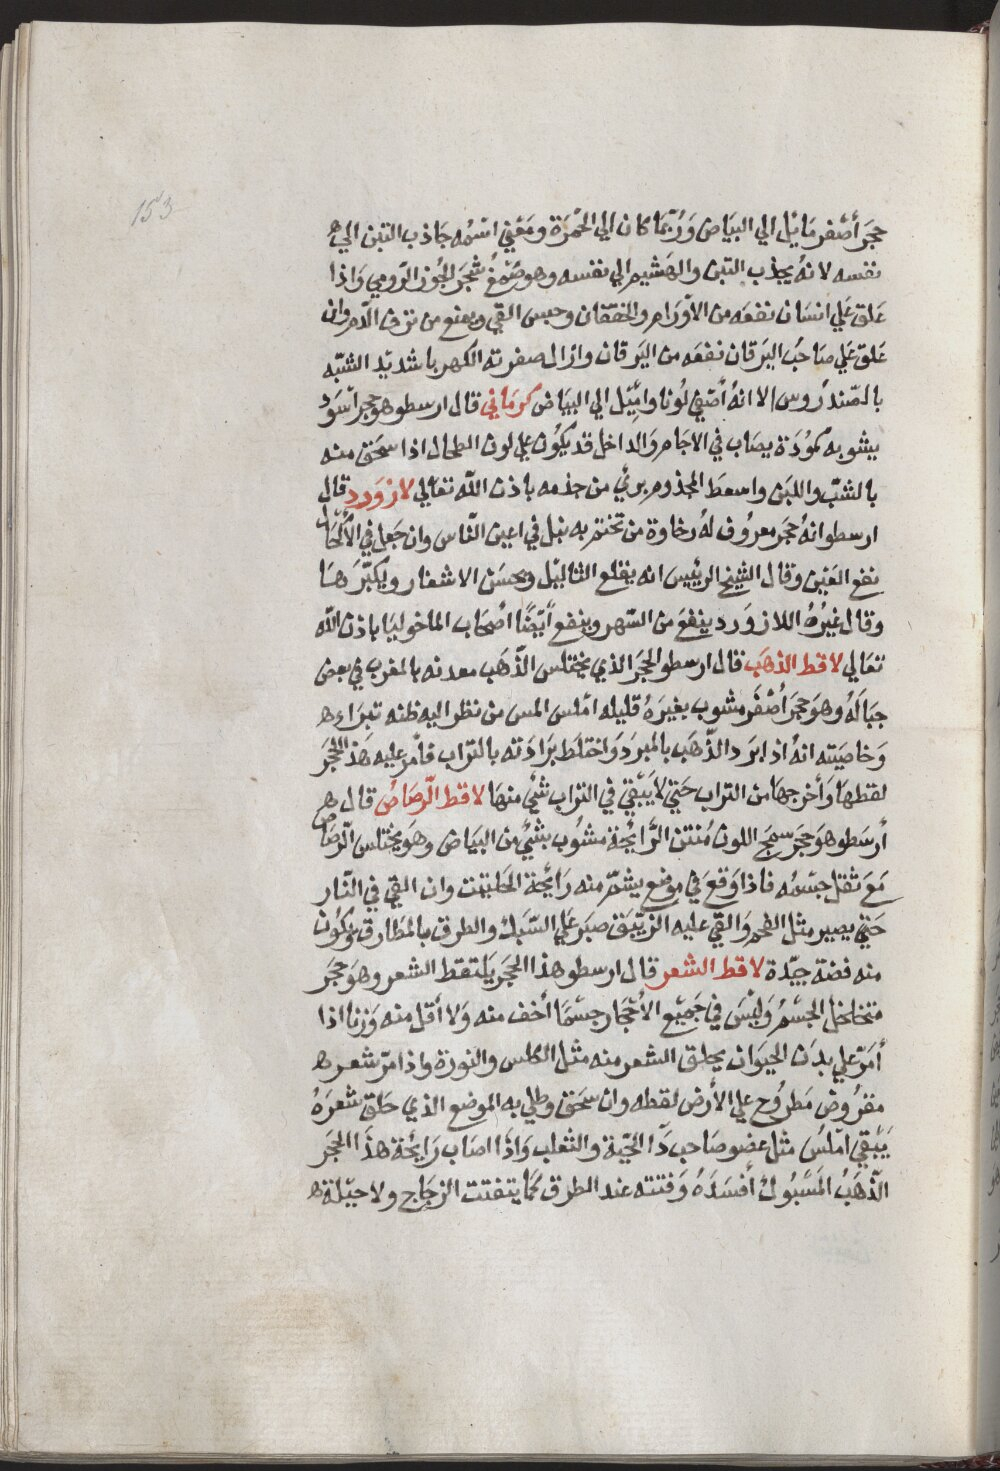 153
حجر أصفر مايل الي البياض وربما كان الي الحمرة ومعني اسمه جاذب التبن الي ه
نفسه لانه يجذب التبن والهشيم الي نفسه وهو صمغ شجر الجوز الرومي واذا
علق علي انسان نفعه من الاورام والخفقان وحبس القي ويمنع من نزف الدم وان
علق علي صاحب اليرقان نفعه من اليرقان وازال صفرته الكهربا شديد الشبه
بالصندروس الا انه أصفي لونا واميل الي البياض كرماني قال ارسطو هو حجر اسود
يشوبه كمودة يصاب في الاجام والداخل قد يكون علي لون الطحال اذا سحق منه
بالشب واللبن واسعط المجذوم بري من جذمه باذن الله تعالي لازورد قال
ارسطو انه حجر معروف له رخاوة من تختم به نبل في اعين الناس وان جعل في الأكحال
نفع العين وقال الشيخ الرئيس انه يقلع الثاليل ويحسن الاشفار ويكثرها
وقال غيره اللازورد ينفع من السهر وينفع أيضا أصحاب الماخوليا باذن الله
تعالي لاقط الذهب قال ارسطو الحجر الذي يختلس الذهب معدنه بالمغرب في بعض
جباله وهو حجر أصفر مشوب بغبرة قليله املس المس من نظر اليه ظنه تبراء ه
وخاصيته انه اذ ابرد الذهب بالمبرد واختلط برادته بالتراب فامر عليه هذا الحجر
لقطها وأخرجها من التراب حتي لا يبقي في التراب شئي منها لاقط الرصاص قال ه
أرسطو هو حجر سمج اللون منتن الرايحة مشوب بشئ من البياض وهو يختلس الرصاص
مع ثقل جسمه فاذا وقع في موضع يشم منه رائحة الحلتيت وان القي في النار
حتي يصير مثل الفحم والقي عليه الزيبق صبر علي السبك والطرق بالمطارق ويكون
منه فضة جيدة لاقط الشعر قال ارسطو هذا الحجر يلتقط الشعر وهو حجر
متخلخل الجسم وليس في جميع الأحجار جسما أخف منه ولا أقل منه وزنا اذا
أمر علي بدن الحيوان يحلق الشعر منه مثل الكلس والنورة واذا مر شعر ه
مقروض مطروح علي الأرض لقطه وان سحق وطلي به الموضع الذي حلق شعره
يبقي املس مثل عضو صاحب دا الحية والثعلب واذا اصاب رائحة هذا الحجر
الذهب المسبوك أفسده وفتته عند الطرق كما يتفتت الزجاج ولا حيلة ه